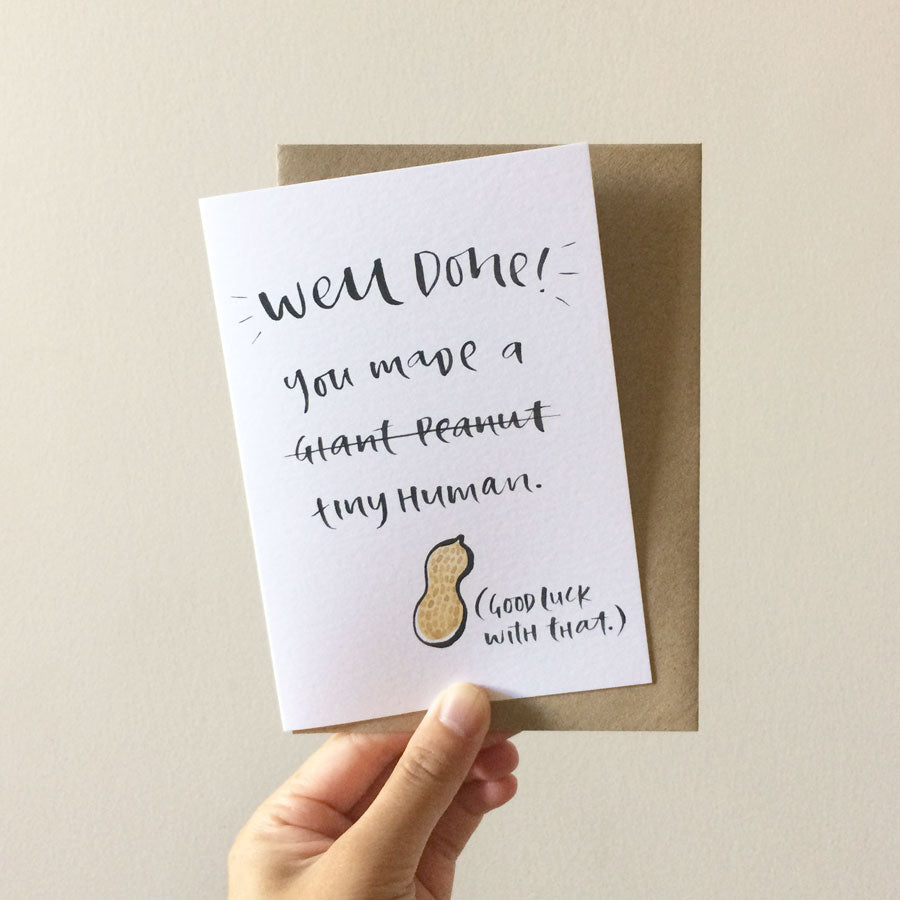 Well Done!
you made a
Giant Peanut
tiny Human.
(Good luck
with that.)